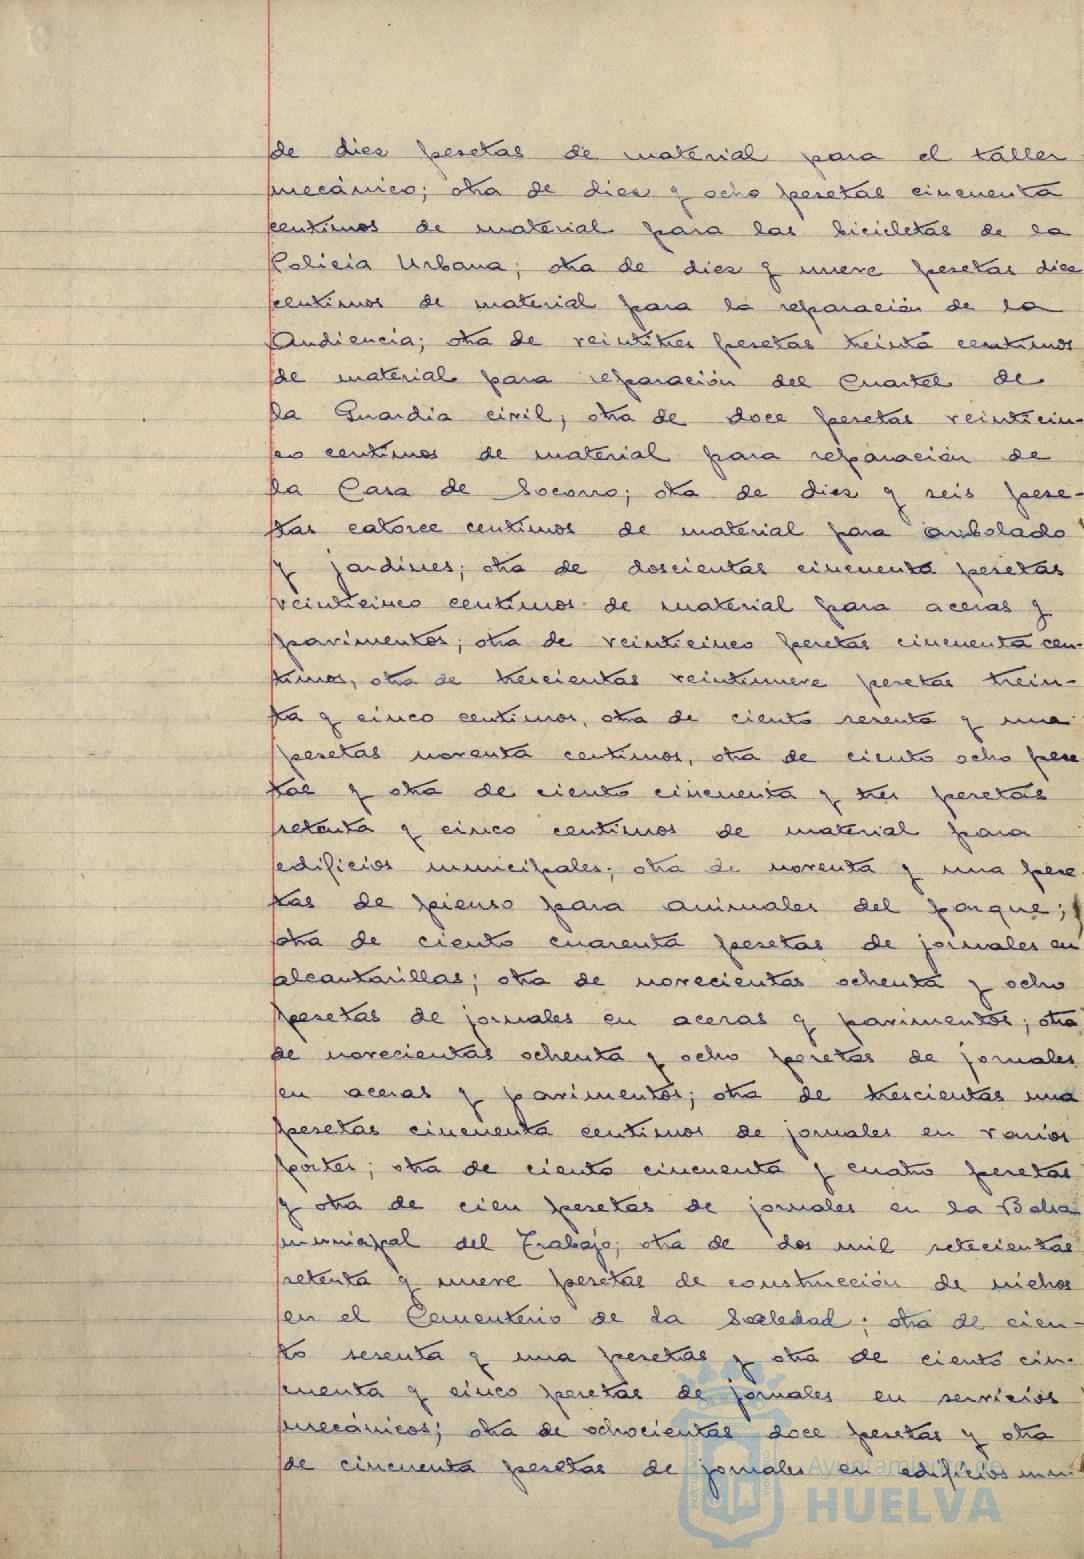 de diez pesetas de material para el taller
mecánico; otra de diez y ocho pesetas cincuenta
centimos de material para las bicicletas de la
Policia Urbana; otra de diez y nueve pesetas diez
centimos de material para la reparación de la
Audiencia; otra de veintitres pesetas treinta centimos
de material para reparación del Cuartel de
la Guardia civil; otra de doce pesetas veinticin-
co centimos de material para reparación de
la Casa de Socorro; otra de diez y seis pese-
tas catorce centimos de material para arbolado
y jardines; otra de doscientas cincuenta pesetas
veinticinco centimos de material para aceras y
pavimentos; otra de veinticinco pesetas cincuenta cen-
timos, otra de trescientas veintinueve pesetas trein-
ta y cinco centimos, otra de ciento sesenta y una
pesetas noventa centimos, otra de ciento ocho pese
tas y otra de ciento cincuenta y tres pesetas
setenta y cinco centimos de material para
edificios municipales; otra de noventa y una pese-
tas de pienso para animales del parque;
otra de ciento cuarenta pesetas de jornales en
alcantarillas; otra de novecientas ochenta y ocho
pesetas de jornales en aceras y pavimentos; otra
de novecientas ochenta y ocho pesetas de jornales
en aceras y pavimentos; otra de trescientas una
pesetas cincuenta centimos de jornales en varios
portes; otra de ciento cincuenta y cuatro pesetas
y otra de cien pesetas de jornales en la Bolsa
municipal del Trabajo; otra de dos mil setecientas
setenta y nueve pesetas de construcción de nichos
en el Cementerio de la Soledad; otra de cien-
to sesenta y una pesetas y otra de ciento cin-
cuenta y cinco pesetas de jornales en servicios
mecánicos; otra de ochocientas doce pesetas y otra
de cincuenta pesetas de jornales en edificios mu-
Ayuntamiento de
HUELVA